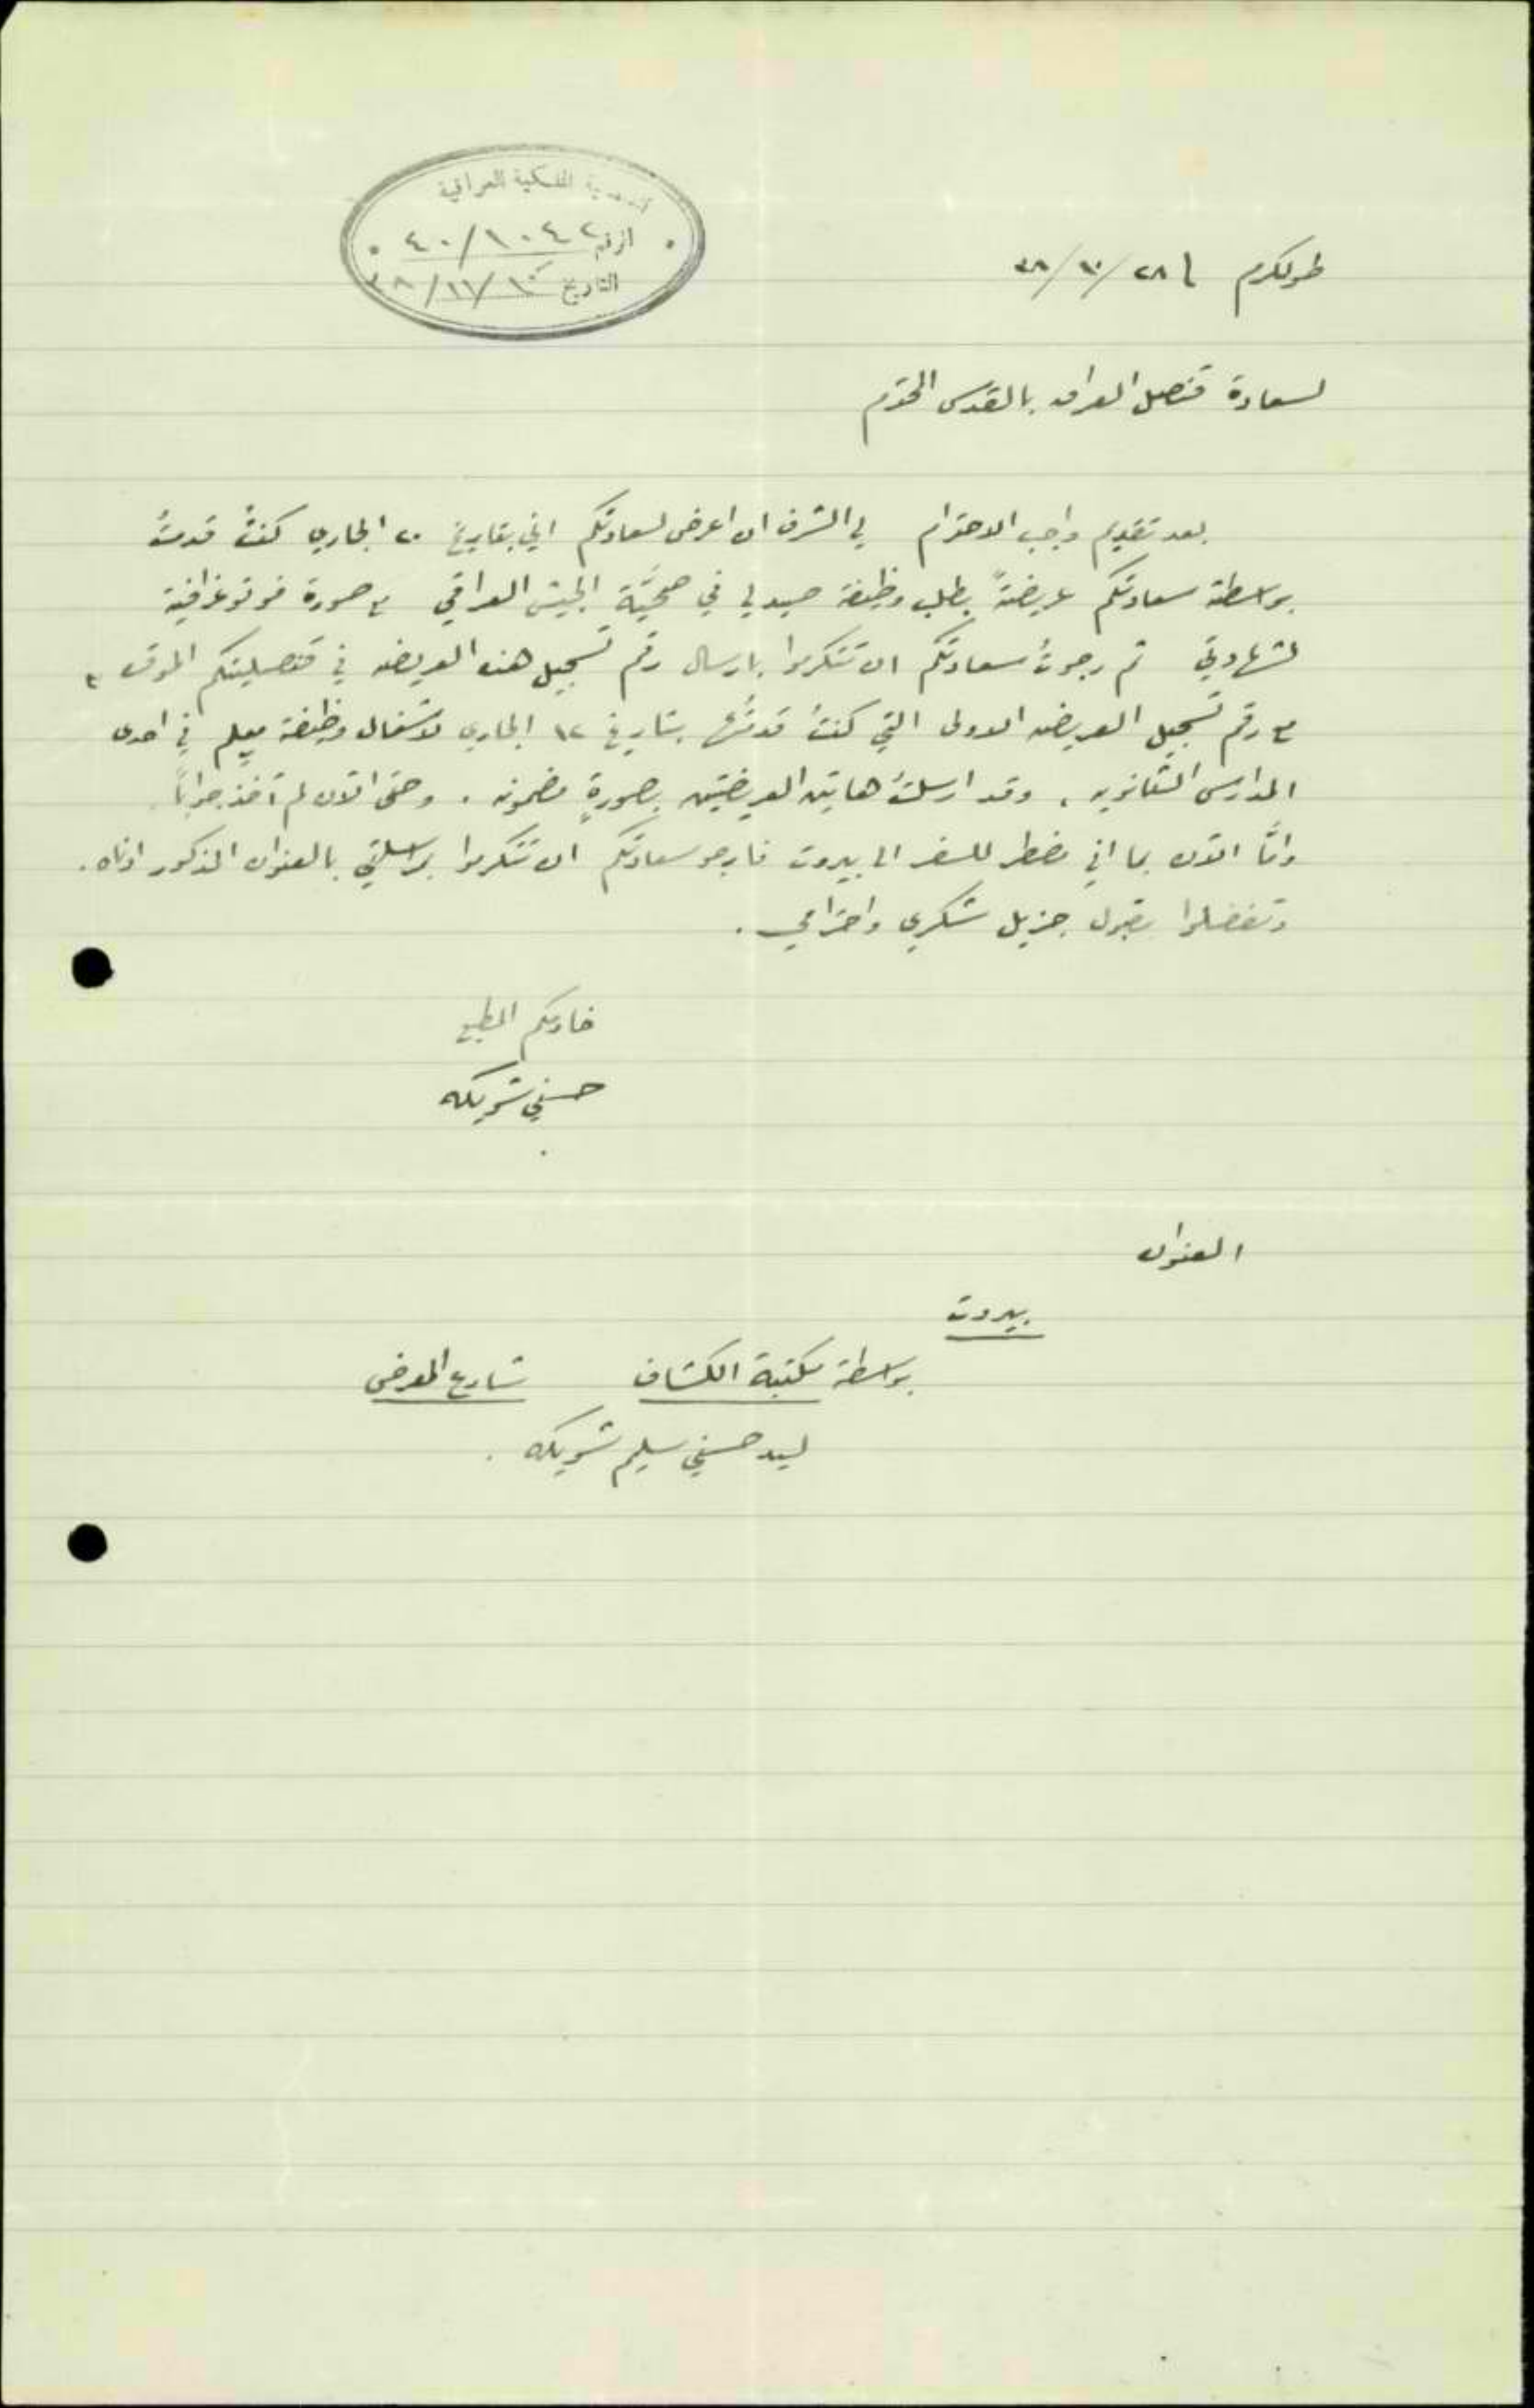 القنصلية الملكية العراقية
الرقم ٤٠/١٠٤٢
التاريخ ١٠/١١/٣٨
طولكرم ٢٨/١٠/٣٨
لسعادة قنصل العراق بالقدس المحترم
بعد تقديم واجب الاحترام لي الشرف ان اعرض لسعادتكم اني بتاريخ ٢٠ الجاري كنتُ قدمتُ
بواسطة سعادتكم عريضةً بطلب وظيفة صيدلي في صحيَّة الجيش العراقي مع صورة فوتوغرافية
لشهادتي ثم رجوتُ سعادتكم ان تتكرموا بارسال رقم تسجيل هذه العريضه في قنصليتكم الموقره
مع رقم تسجيل العريضه الاولى التي كنتُ قدمتُها بتاريخ ١٢ الجاري لاشغال وظيفة معلم في احدى
المدارس الثانويه . وقد ارسلتُ هاتين العريضتين بصورةٍ مضمونه . وحتى الآن لم آخذ جواباً
وامَّا الآن بما اني مضطر للسفر الى بيروت فارجو سعادتكم ان تتكرموا بمراسلتي بالعنوان المذكور ادناه .
وتفضلوا بقبول جزيل شكري واحترامي .
خادمكم المطيع
حسني شويكه
العنوان
بيروت
بواسطة مكتبة الكشاف شارع المعرض
ليد حسني سليم شويكه .